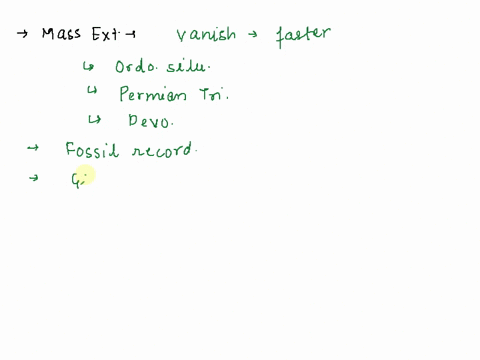 → Mass Ext. → Vanish → faster
↳ Ordo. silu.
↳ Permian Tri.
↳ Devo.
→ Fossil record.
→ Gi